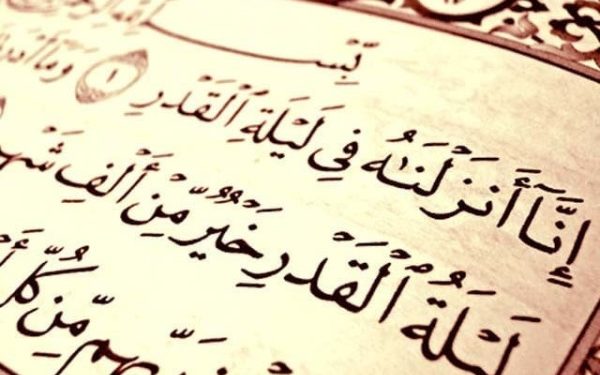 بِّسْمِ ٱللَّهِ
إِنَّآ أَنزَلْنَٰهُ فِي لَيْلَةِ ٱلْقَدْرِ ١ وَمَآ أَدْرَ
لَيْلَةُ ٱلْقَدْرِ خَيْرٌ مِّنْ أَلْفِ شَهْ
رَبِّهِم مِّن كُلِّ أَ